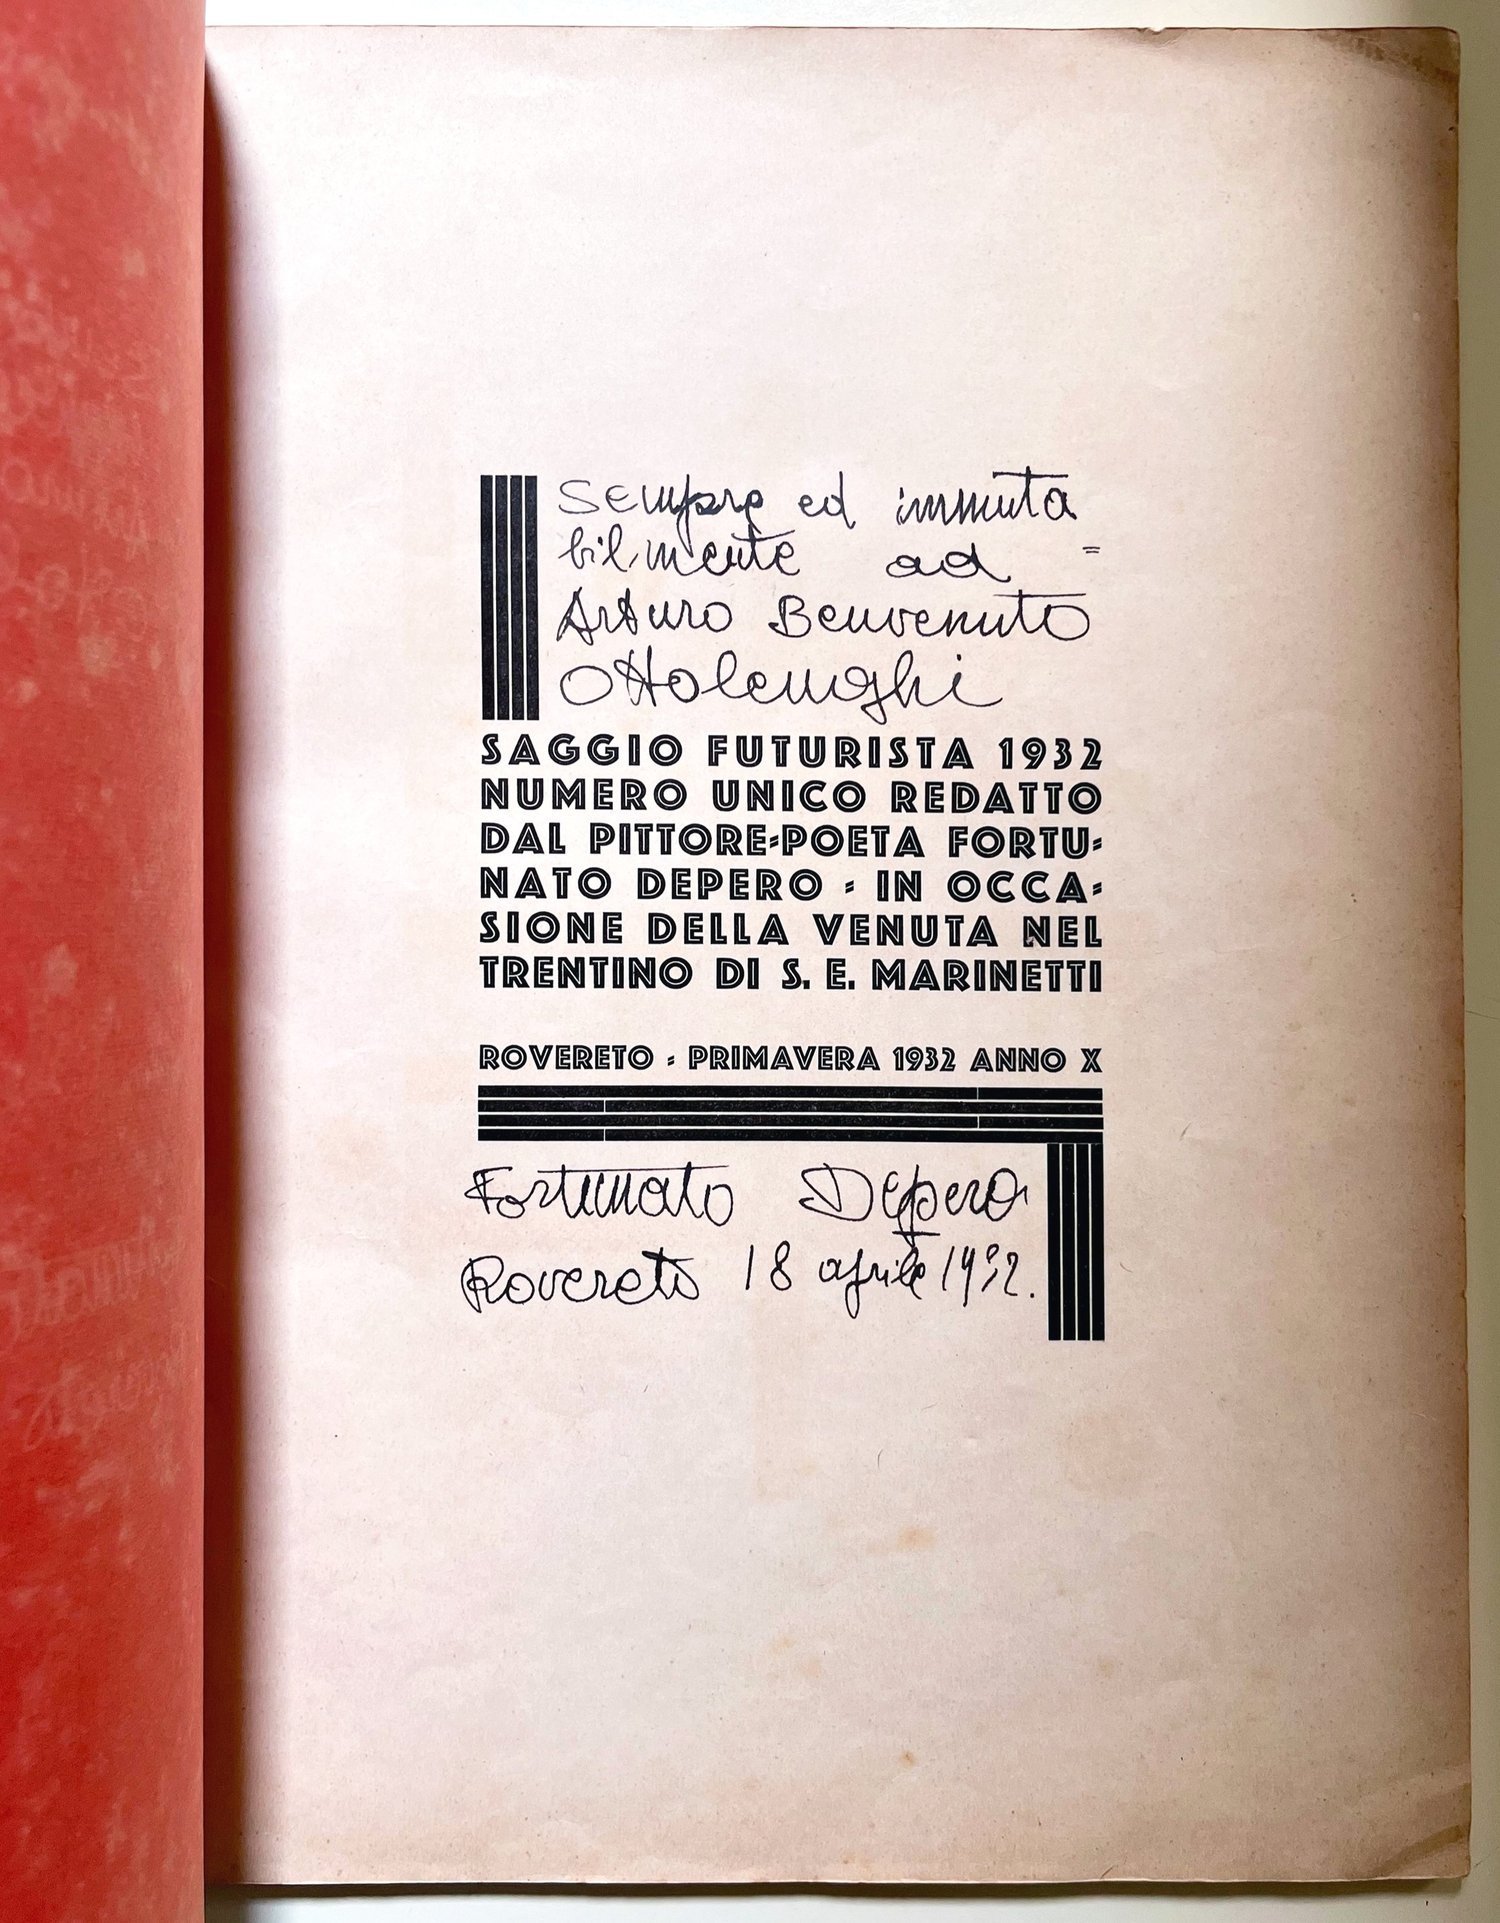 Sempre ed immuta
bilmente ad =
Arturo Benvenuto
Ottolenghi
SAGGIO FUTURISTA 1932
NUMERO UNICO REDATTO
DAL PITTORE=POETA FORTU=
NATO DEPERO = IN OCCA=
SIONE DELLA VENUTA NEL
TRENTINO DI S. E. MARINETTI
ROVERETO = PRIMAVERA 1932 ANNO X
Fortunato Depero
Rovereto 18 aprile 1932.